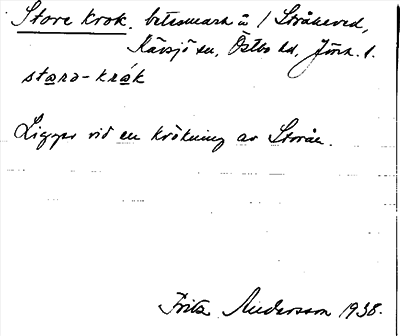 Store krok. betesmark å / Stråkeved,
Kävsjö sn, Östbo hd, Jönk. l.
stɑrə-krɑ́k
Ligger vid en krökning av Storån.
Fritz Andersson 1938.